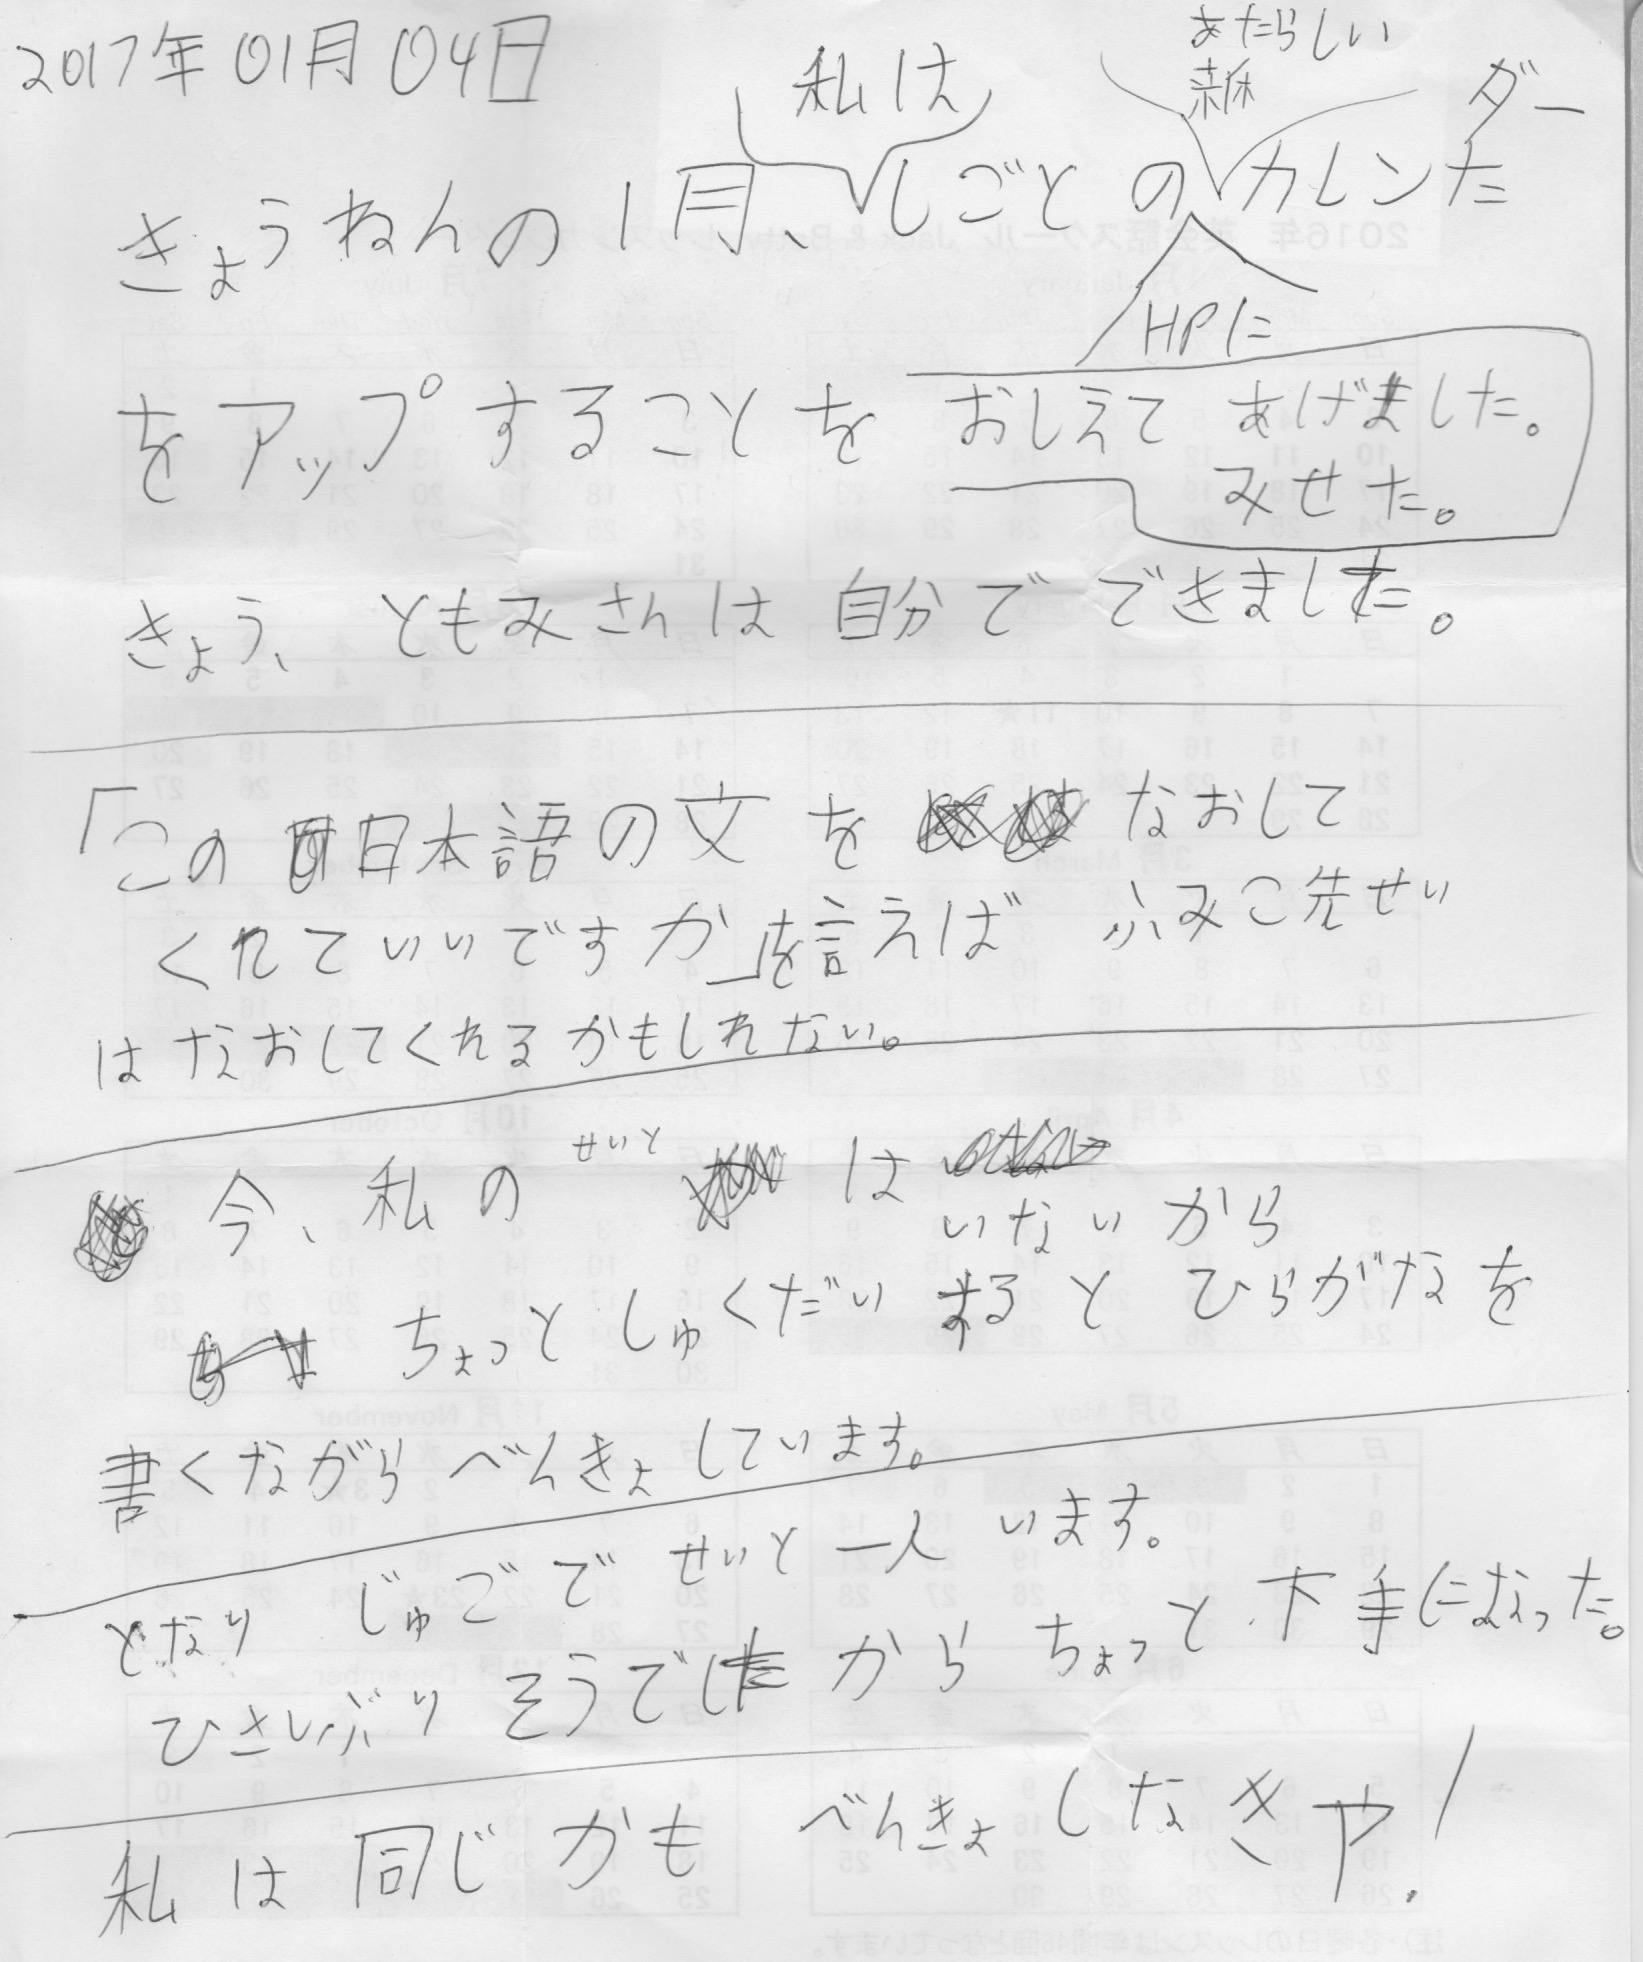 2017年01月04日
私は
あたらしい
ダー
きょうねんの1月、しごとのカレンた
HPに
をアップすることをおしえてあげました。
みせた。
きょう、ともみさんは自分でできました。
「この日本語の文をなおして
くれていいですか」を言えばふみこ先せい
はなおしてくれるかもしれない。
せいと
今、私のは
いないから
ちょっとしゅくだいまるとひらがなを
書くながらべんきょしています。
となりじゅごでせいと一人います。
ひさしぶりそうでしたからちょっと下手になった。
私は同じかもべんきょしなきゃ!